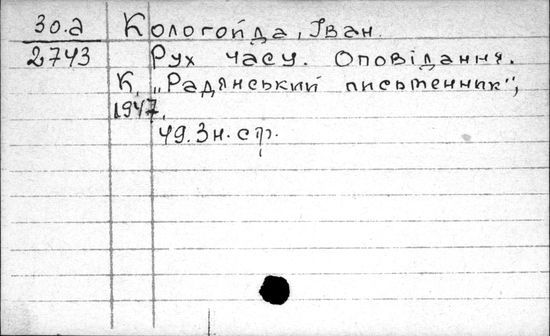 30.д
2743
Кологойда, Іван.
Рух часу. Оповідання.
К. „Радянський письменник",
1947.
49.3н. стр.